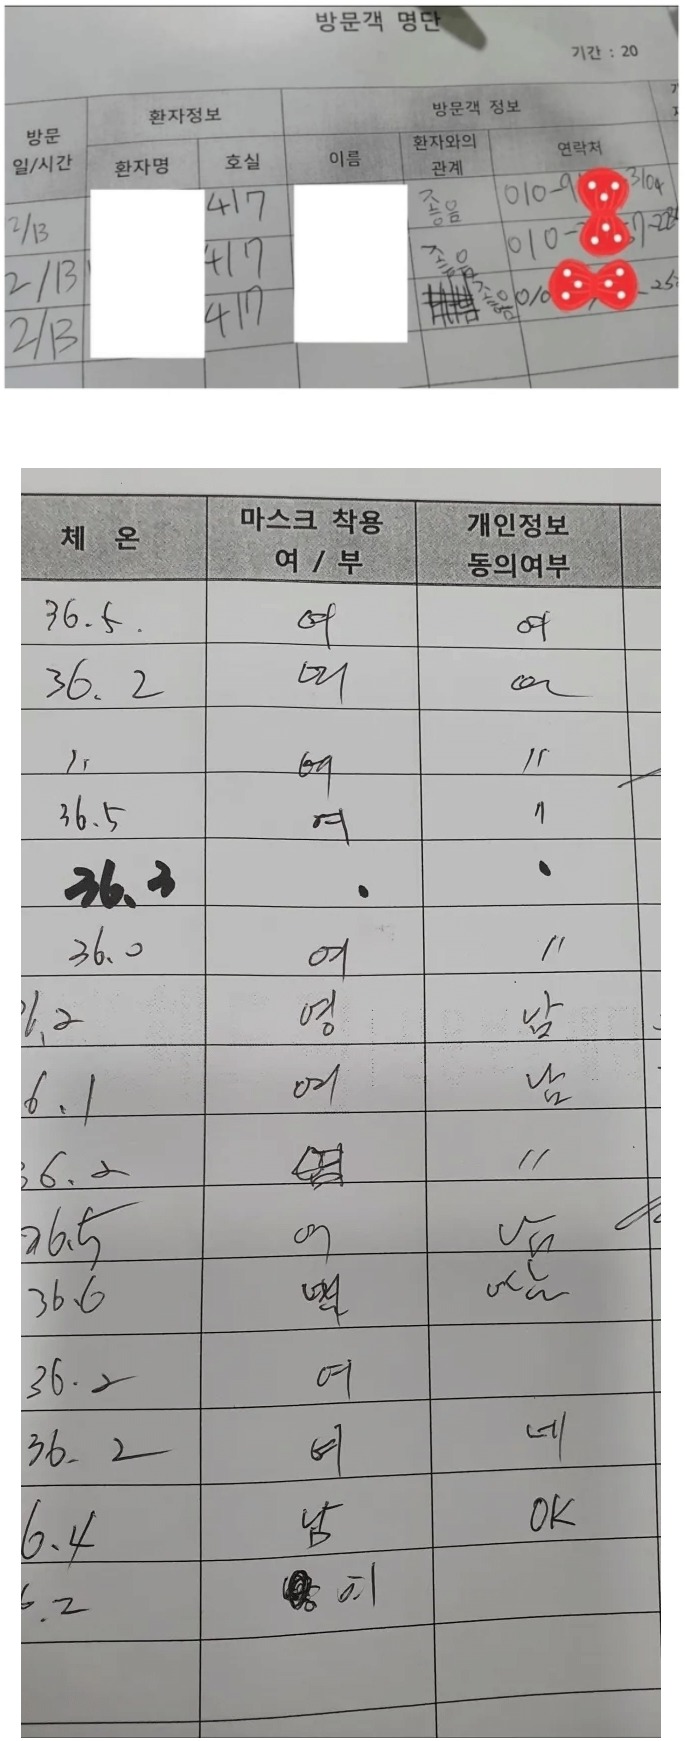 방문객 명단
기간 : 20
방문 일/시간 환자정보 방문객 정보
환자명 호실 이름 환자와의 관계 연락처
2/13 417 좋음 010-9 3104
2/13 417 좋음 010-
2/13 417 좋음 010
체 온 마스크 착용 여 / 부 개인정보 동의여부
36.5. 여 여
36.2 여 여
〃 여 〃
36.5 여 〃
36.3 . .
36.0 여 〃
6.2 영 남
6.1 여 남
36.2 〃
36.5 여 남
36.6 남
36.2 여
36.2 여 네
6.4 남 OK
6.2